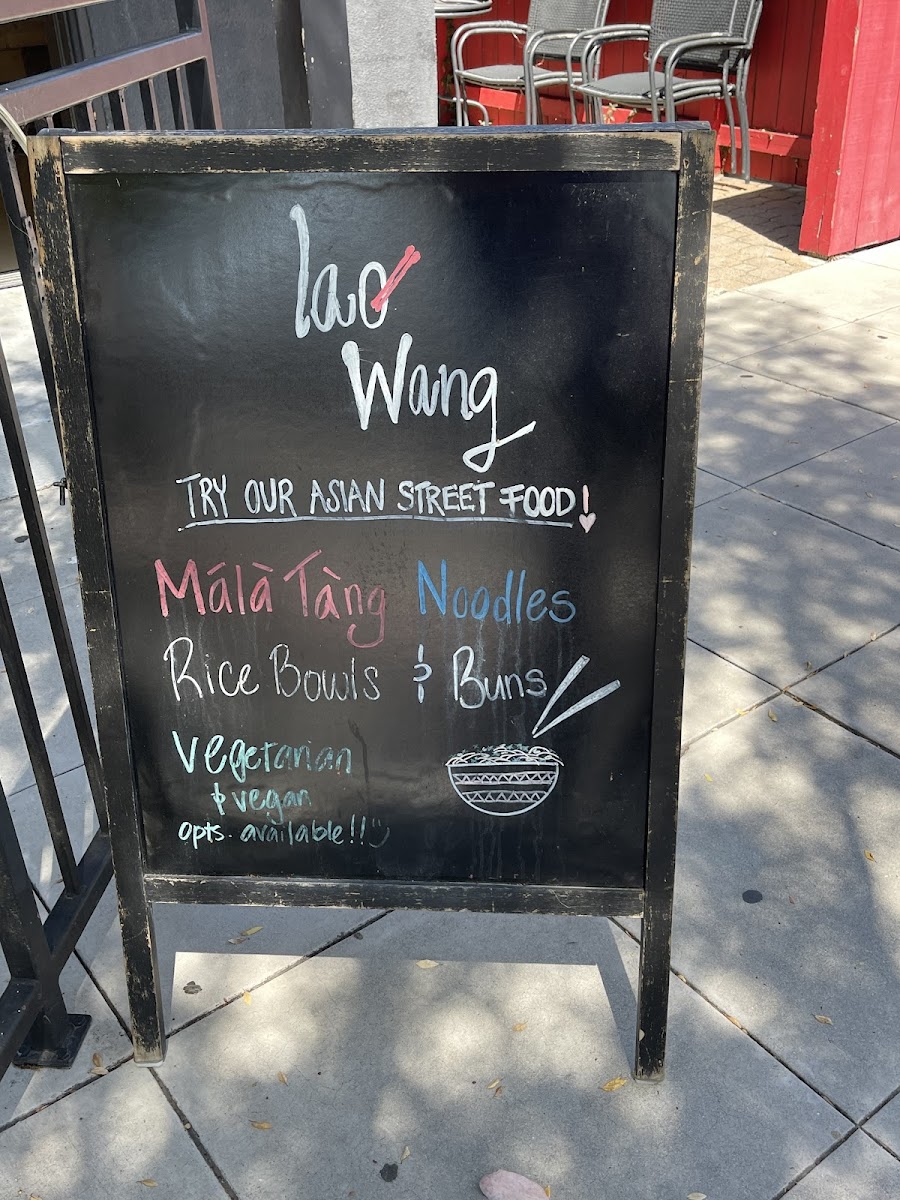 lao
Wang
TRY OUR ASIAN STREET FOOD!
Málà Tàng Noodles
Rice Bowls & Buns
Vegetarian
& vegan
opts. available!!